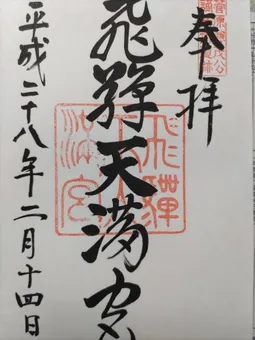 奉拝
飛騨天満宮
平成二十八年二月十四日
飛騨天満宮